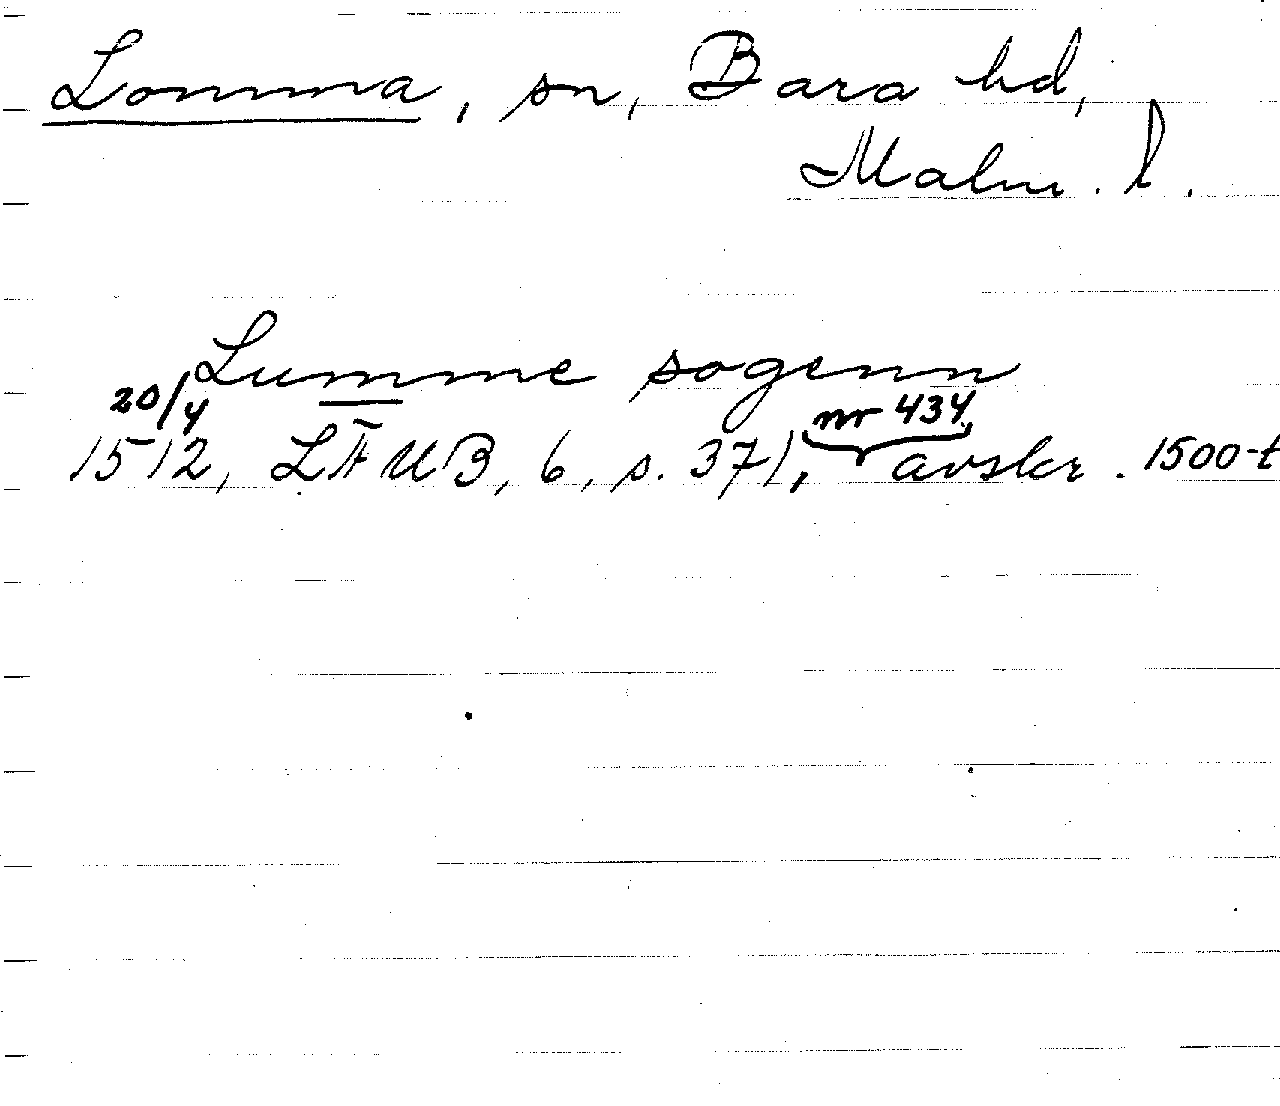 Lomma, sn, Bara hd,
Malm. l.
Lumme sogenn
20/4 1512, LÄUB, 6, s. 371, nr 434, avskr. 1500-t